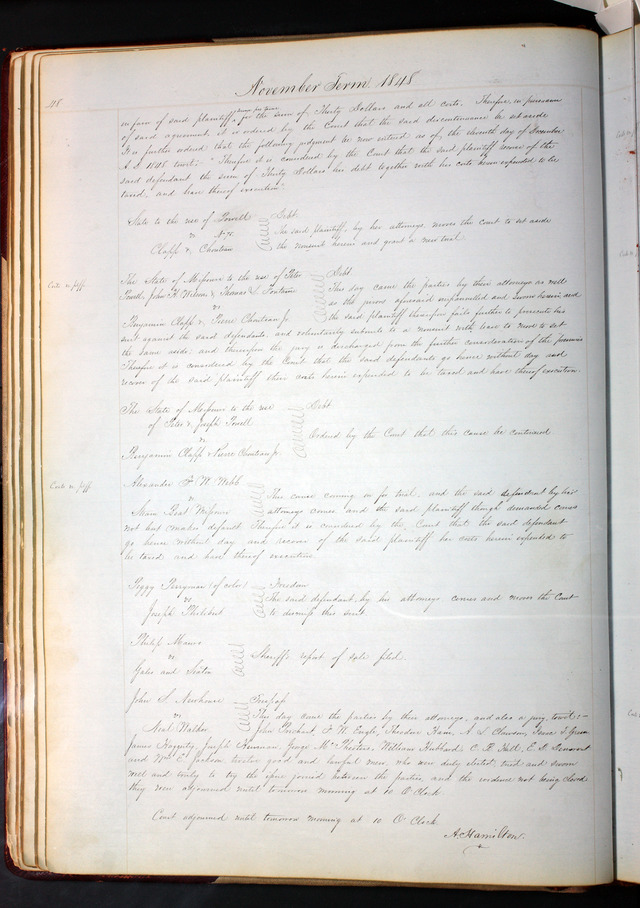 November Term 1848
418
in favor of said plaintiff, for the sum of Thirty Dollars and all costs. Therefore, in pursuance
of said agreement, it is ordered by the Court that the said discontinuance be set aside
It is further ordered that the following judgment be now entered as of, the eleventh day of December
A.D. 1848 towit: "Therefore it is considered by the Court that the said plaintiff recover of the
said defendant the sum of Thirty Dollars her debt together with his costs herein expended to be
taxed, and have thereof execution."
State to the use of Powell
vs
Clapp & Chouteau
Debt
The said plaintiff, by her attorneys moves the court to set aside
the nonsuit herein and grant a new trial.
Costs vs plff.
The State of Missouri to the use of Peter
Powell, John H. Wilson & Thomas L. Fontaine
vs
Benjamin Clapp & Pierre Chouteau Jr
Debt
This day came the parties by their attorneys as well
as the jurors aforesaid empannelled and sworn herein and
the said plaintiff therefore fails further to prosecute his
suit against the said defendants, and voluntarily submits to a nonsuit with leave to move to set
the same aside; and therefore the jury is discharged from the further consideration of the premises
Therefore it is considered by the Court that the said defendants go hence without day and
recover of the said plaintiff their costs herein expended to be taxed and have thereof execution.
The State of Missouri to the use
of Peter & Joseph Powell
vs
Benjamin Clapp & Pierre Chouteau Jr
Debt
Ordered by the Court that this cause be continued
Costs vs plff.
Alexander F. W. Webb
vs
Steam Boat Missouri
This cause coming on for trial, and the said defendant by her
attorneys comes and the said plaintiff though demanded comes
not but makes default. Therefore it is considered by the Court that the said defendant
go hence without day and recover of the said plaintiff her costs herein expended to
be taxed and have thereof execution
Peggy Perryman (of color)
vs
Joseph Philibert
Freedom
The said defendant, by his attorneys comes and moves the Court
to dismiss this suit.
Philip
vs
Gales and Seaton
Sheriffs report of sale filed.
John S. Newhouse
vs
Neal Walker
Trespass
This day came the parties by their attorneys, and also a jury, towit:—
John F. W. Engle, Theodore A. S. Clawson, Jesse
James Haggerty, Joseph George William Hubbard, O. P. Hall, E. A.
and Wm. E. Jackson twelve good and lawful men, who were duly elected, tried and sworn
well and truly to try the issue joined between the parties, and the evidence not being closed
they were adjourned until tomorrow morning at 10 O'Clock.
Court adjourned until tomorrow morning at 10 O'Clock
A. Hamilton.